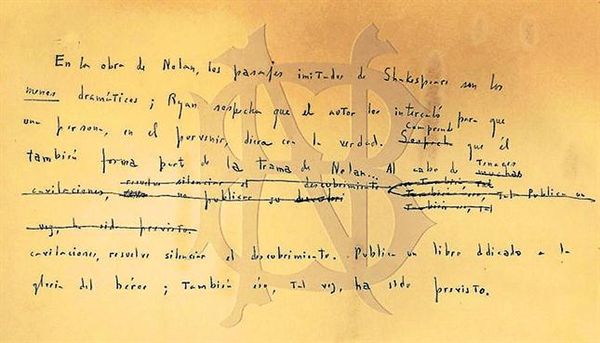 En la obra de Nolan, los pasajes imitados de Shakespeare son los
menos dramáticos; Ryan sospecha que el autor los intercaló para que
Comprende
una persona, en el porvenir, diera con la verdad. Sospecha que él
Tenaces
también forma parte de la trama de Nolan... Al cabo de muchas
resuelve silenciar el descubrimiento también, tal
cavilaciones, no publicar su También, tal Publica un
También, tal
vez, ha sido previsto.
cavilaciones, resuelve silenciar el descubrimiento. Publica un libro dedicado a la
gloria del héroe; también eso, tal vez, ha sido previsto.